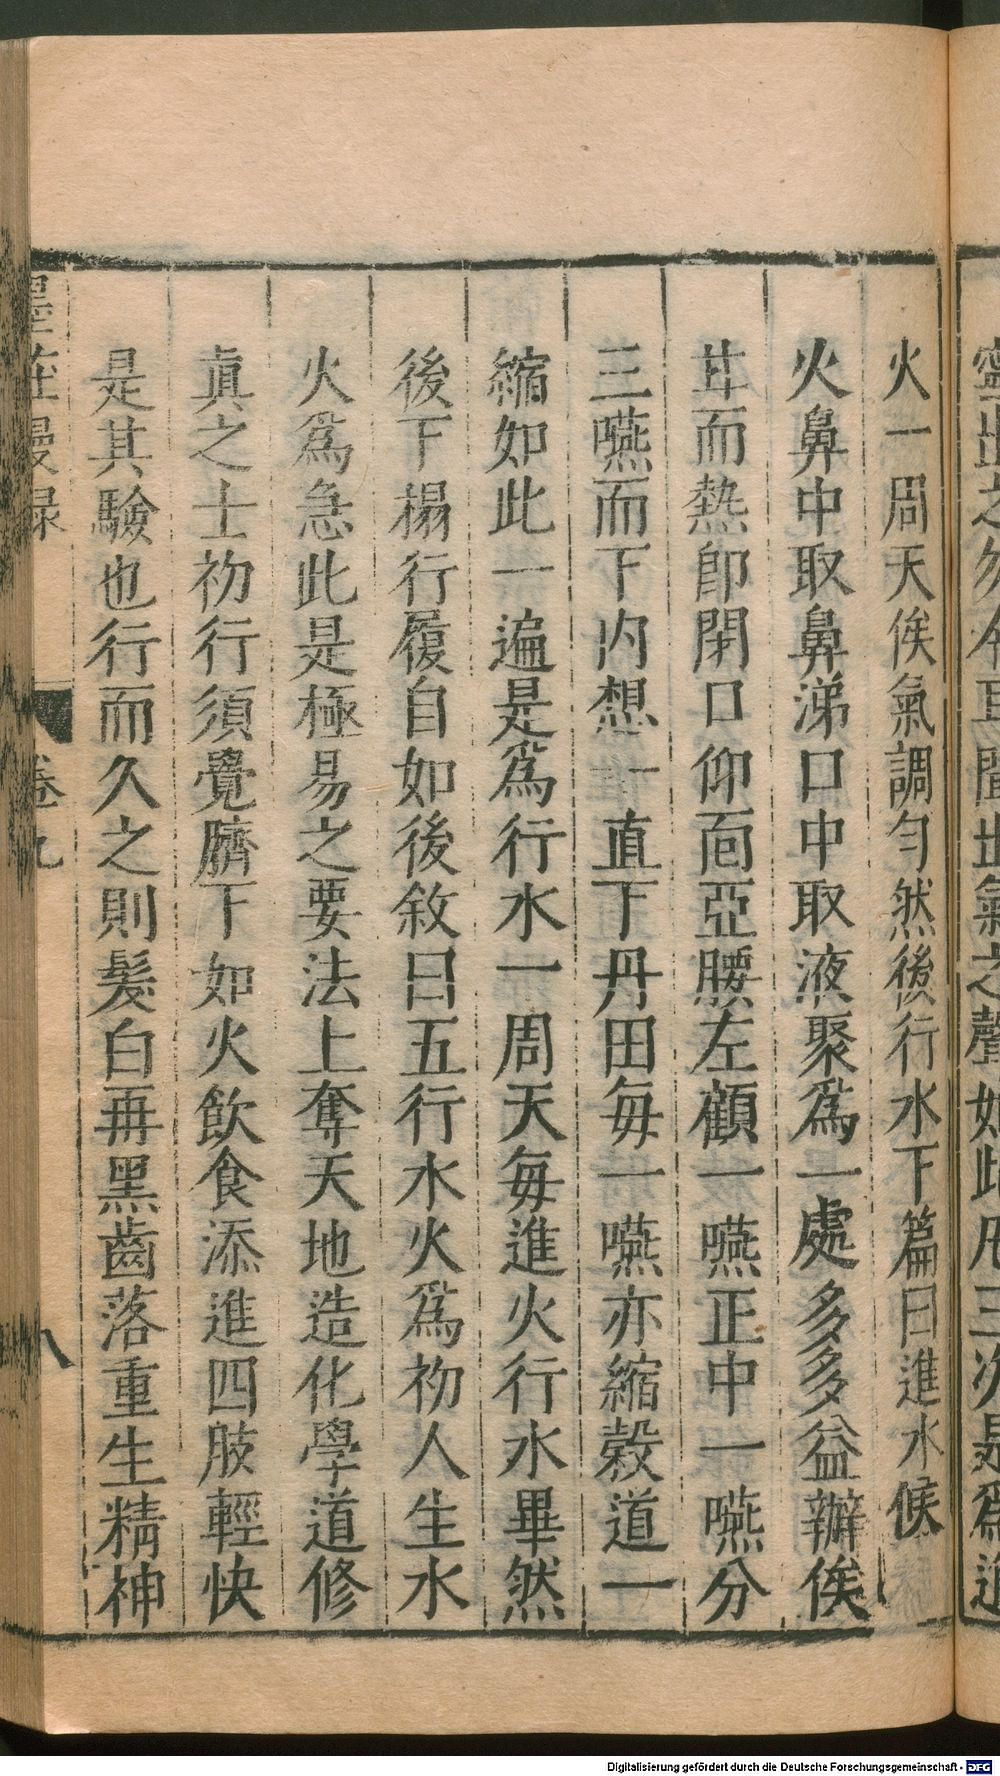 火一周天俟氣調勻然後行水下篇曰進水候
火鼻中取鼻涕口中取液聚爲一處多多益辦俟
甘而熱卽閉口仰面亞腰左顧一嚥正中一嚥分
三嚥而下內想一直下丹田每一嚥亦縮穀道一
縮如此一遍是爲行水一周天每進火行水畢然
後下榻行履自如後敘曰五行水火爲初人生水
火爲急此是極易之要法上奪天地造化學道修
眞之士初行須覺臍下如火飲食添進四肢輕快
是其驗也行而久之則髮白再黑齒落重生精神
墨莊漫録 卷九 八
Digitalisierung gefördert durch die Deutsche Forschungsgemeinschaft - DFG